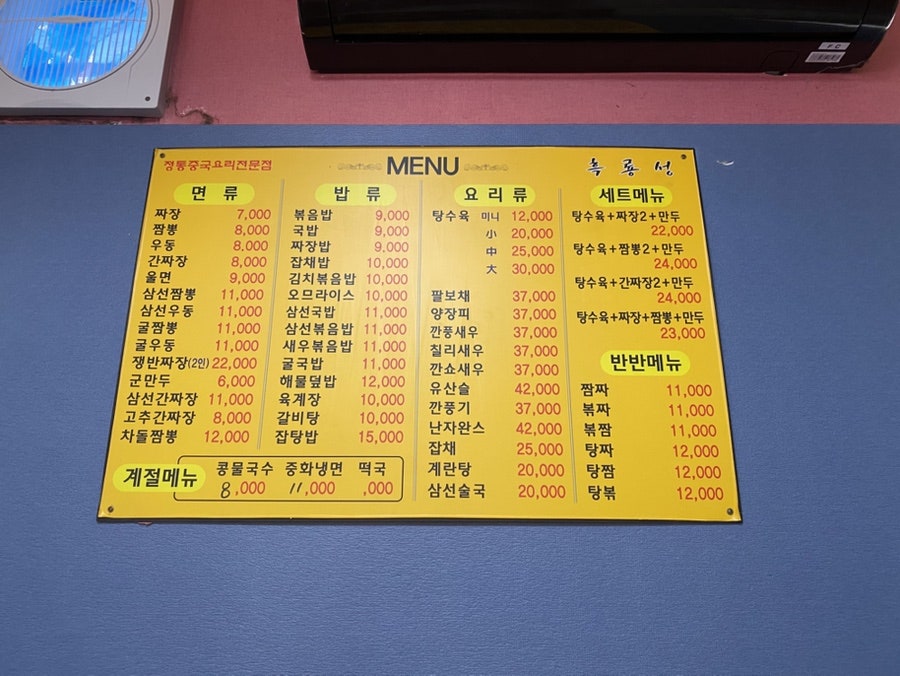 정통중국요리전문점
MENU
흑룡성
면 류
짜장 7,000
짬뽕 8,000
우동 8,000
간짜장 8,000
울면 9,000
삼선짬뽕 11,000
삼선우동 11,000
굴짬뽕 11,000
굴우동 11,000
쟁반짜장(2인) 22,000
군만두 6,000
삼선간짜장 11,000
고추간짜장 8,000
차돌짬뽕 12,000
밥 류
볶음밥 9,000
국밥 9,000
짜장밥 9,000
잡채밥 10,000
김치볶음밥 10,000
오므라이스 10,000
삼선국밥 11,000
삼선볶음밥 11,000
새우볶음밥 11,000
굴국밥 11,000
해물덮밥 12,000
육계장 10,000
갈비탕 10,000
잡탕밥 15,000
요 리 류
탕수육 미니 12,000
小 20,000
中 25,000
大 30,000
팔보채 37,000
양장피 37,000
깐풍새우 37,000
칠리새우 37,000
깐쇼새우 37,000
유산슬 42,000
깐풍기 37,000
난자완스 42,000
잡채 25,000
계란탕 20,000
삼선술국 20,000
세트메뉴
탕수육+짜장2+만두
22,000
탕수육+짬뽕2+만두
24,000
탕수육+간짜장2+만두
24,000
탕수육+짜장+짬뽕+만두
23,000
반반메뉴
짬짜 11,000
볶짜 11,000
볶짬 11,000
탕짜 12,000
탕짬 12,000
탕볶 12,000
계절메뉴
콩물국수 중화냉면 떡국
8,000 11,000 ,000
FC